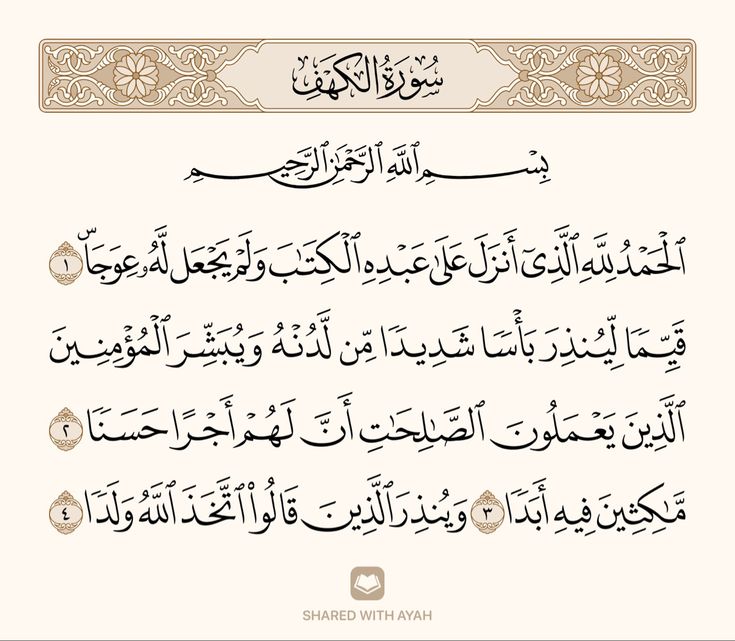 سُورَةُ الكَهْفِ
بِسْمِ ٱللَّهِ ٱلرَّحْمَٰنِ ٱلرَّحِيمِ
ٱلْحَمْدُ لِلَّهِ ٱلَّذِىٓ أَنزَلَ عَلَىٰ عَبْدِهِ ٱلْكِتَٰبَ وَلَمْ يَجْعَل لَّهُۥ عِوَجَاۜ ١
قَيِّمًا لِّيُنذِرَ بَأْسًا شَدِيدًا مِّن لَّدُنْهُ وَيُبَشِّرَ ٱلْمُؤْمِنِينَ
ٱلَّذِينَ يَعْمَلُونَ ٱلصَّٰلِحَٰتِ أَنَّ لَهُمْ أَجْرًا حَسَنًا ٢
مَّٰكِثِينَ فِيهِ أَبَدًا ٣ وَيُنذِرَ ٱلَّذِينَ قَالُوا۟ ٱتَّخَذَ ٱللَّهُ وَلَدًا ٤
SHARED WITH AYAH